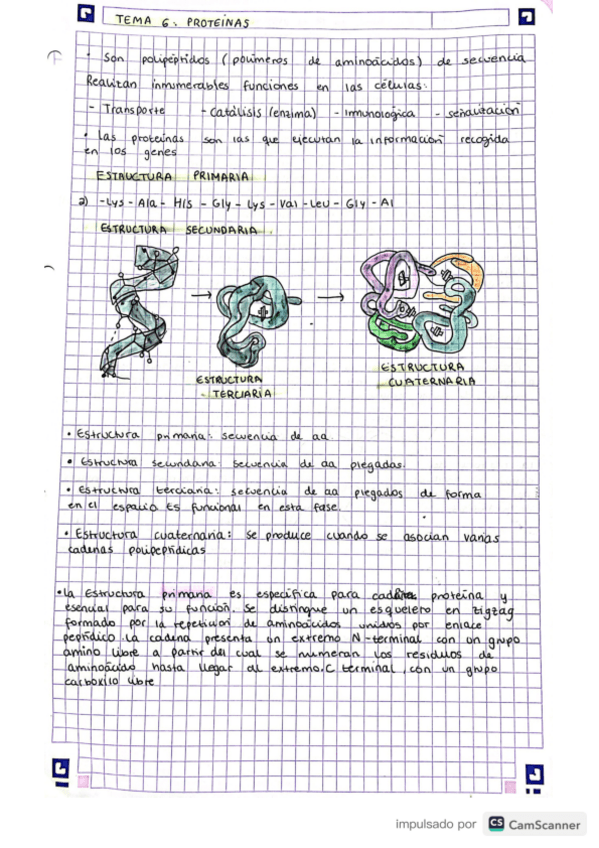 TEMA 6: PROTEÍNAS
• Son polipéptidos (polímeros de aminoácidos) de secuencia
Realizan innumerables funciones en las células:
- Transporte - Catálisis (enzima) - Inmunológica - señalización
• Las proteínas son las que ejecutan la información recogida
en los genes
ESTRUCTURA PRIMARIA
a) -Lys - Ala - His - Gly - Lys - Val - Leu - Gly - Al
ESTRUCTURA SECUNDARIA.
ESTRUCTURA
TERCIARIA
ESTRUCTURA
CUATERNARIA
• Estructura primaria: secuencia de aa
• Estructura secundaria: secuencia de aa plegadas.
• Estructura terciaria: secuencia de aa plegados de forma
en el espacio Es funcional en esta fase.
• Estructura cuaternaria: se produce cuando se asocian varias
cadenas polipeptídicas
• La Estructura primaria es específica para cada proteína y
esencial para su función. Se distingue un esqueleto en zigzag
formado por la repetición de aminoácidos unidos por enlace
peptídico. La cadena presenta un extremo N-terminal con un grupo
amino libre a partir del cual se numeran los residuos de
aminoácido hasta llegar al extremo C terminal, con un grupo
carboxilo libre
impulsado por CS CamScanner